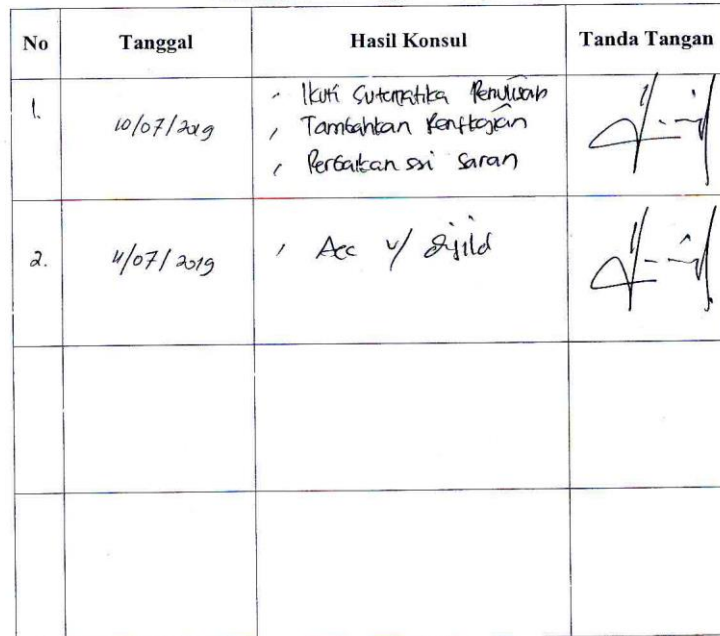 No Tanggal Hasil Konsul Tanda Tangan
1. 10/07/2019 - Ikuti Sutematika Penulisan
, Tambahkan Pengkajian
, Perbaikan ssi saran
2. 11/07/2019 , Acc u/ dijilid